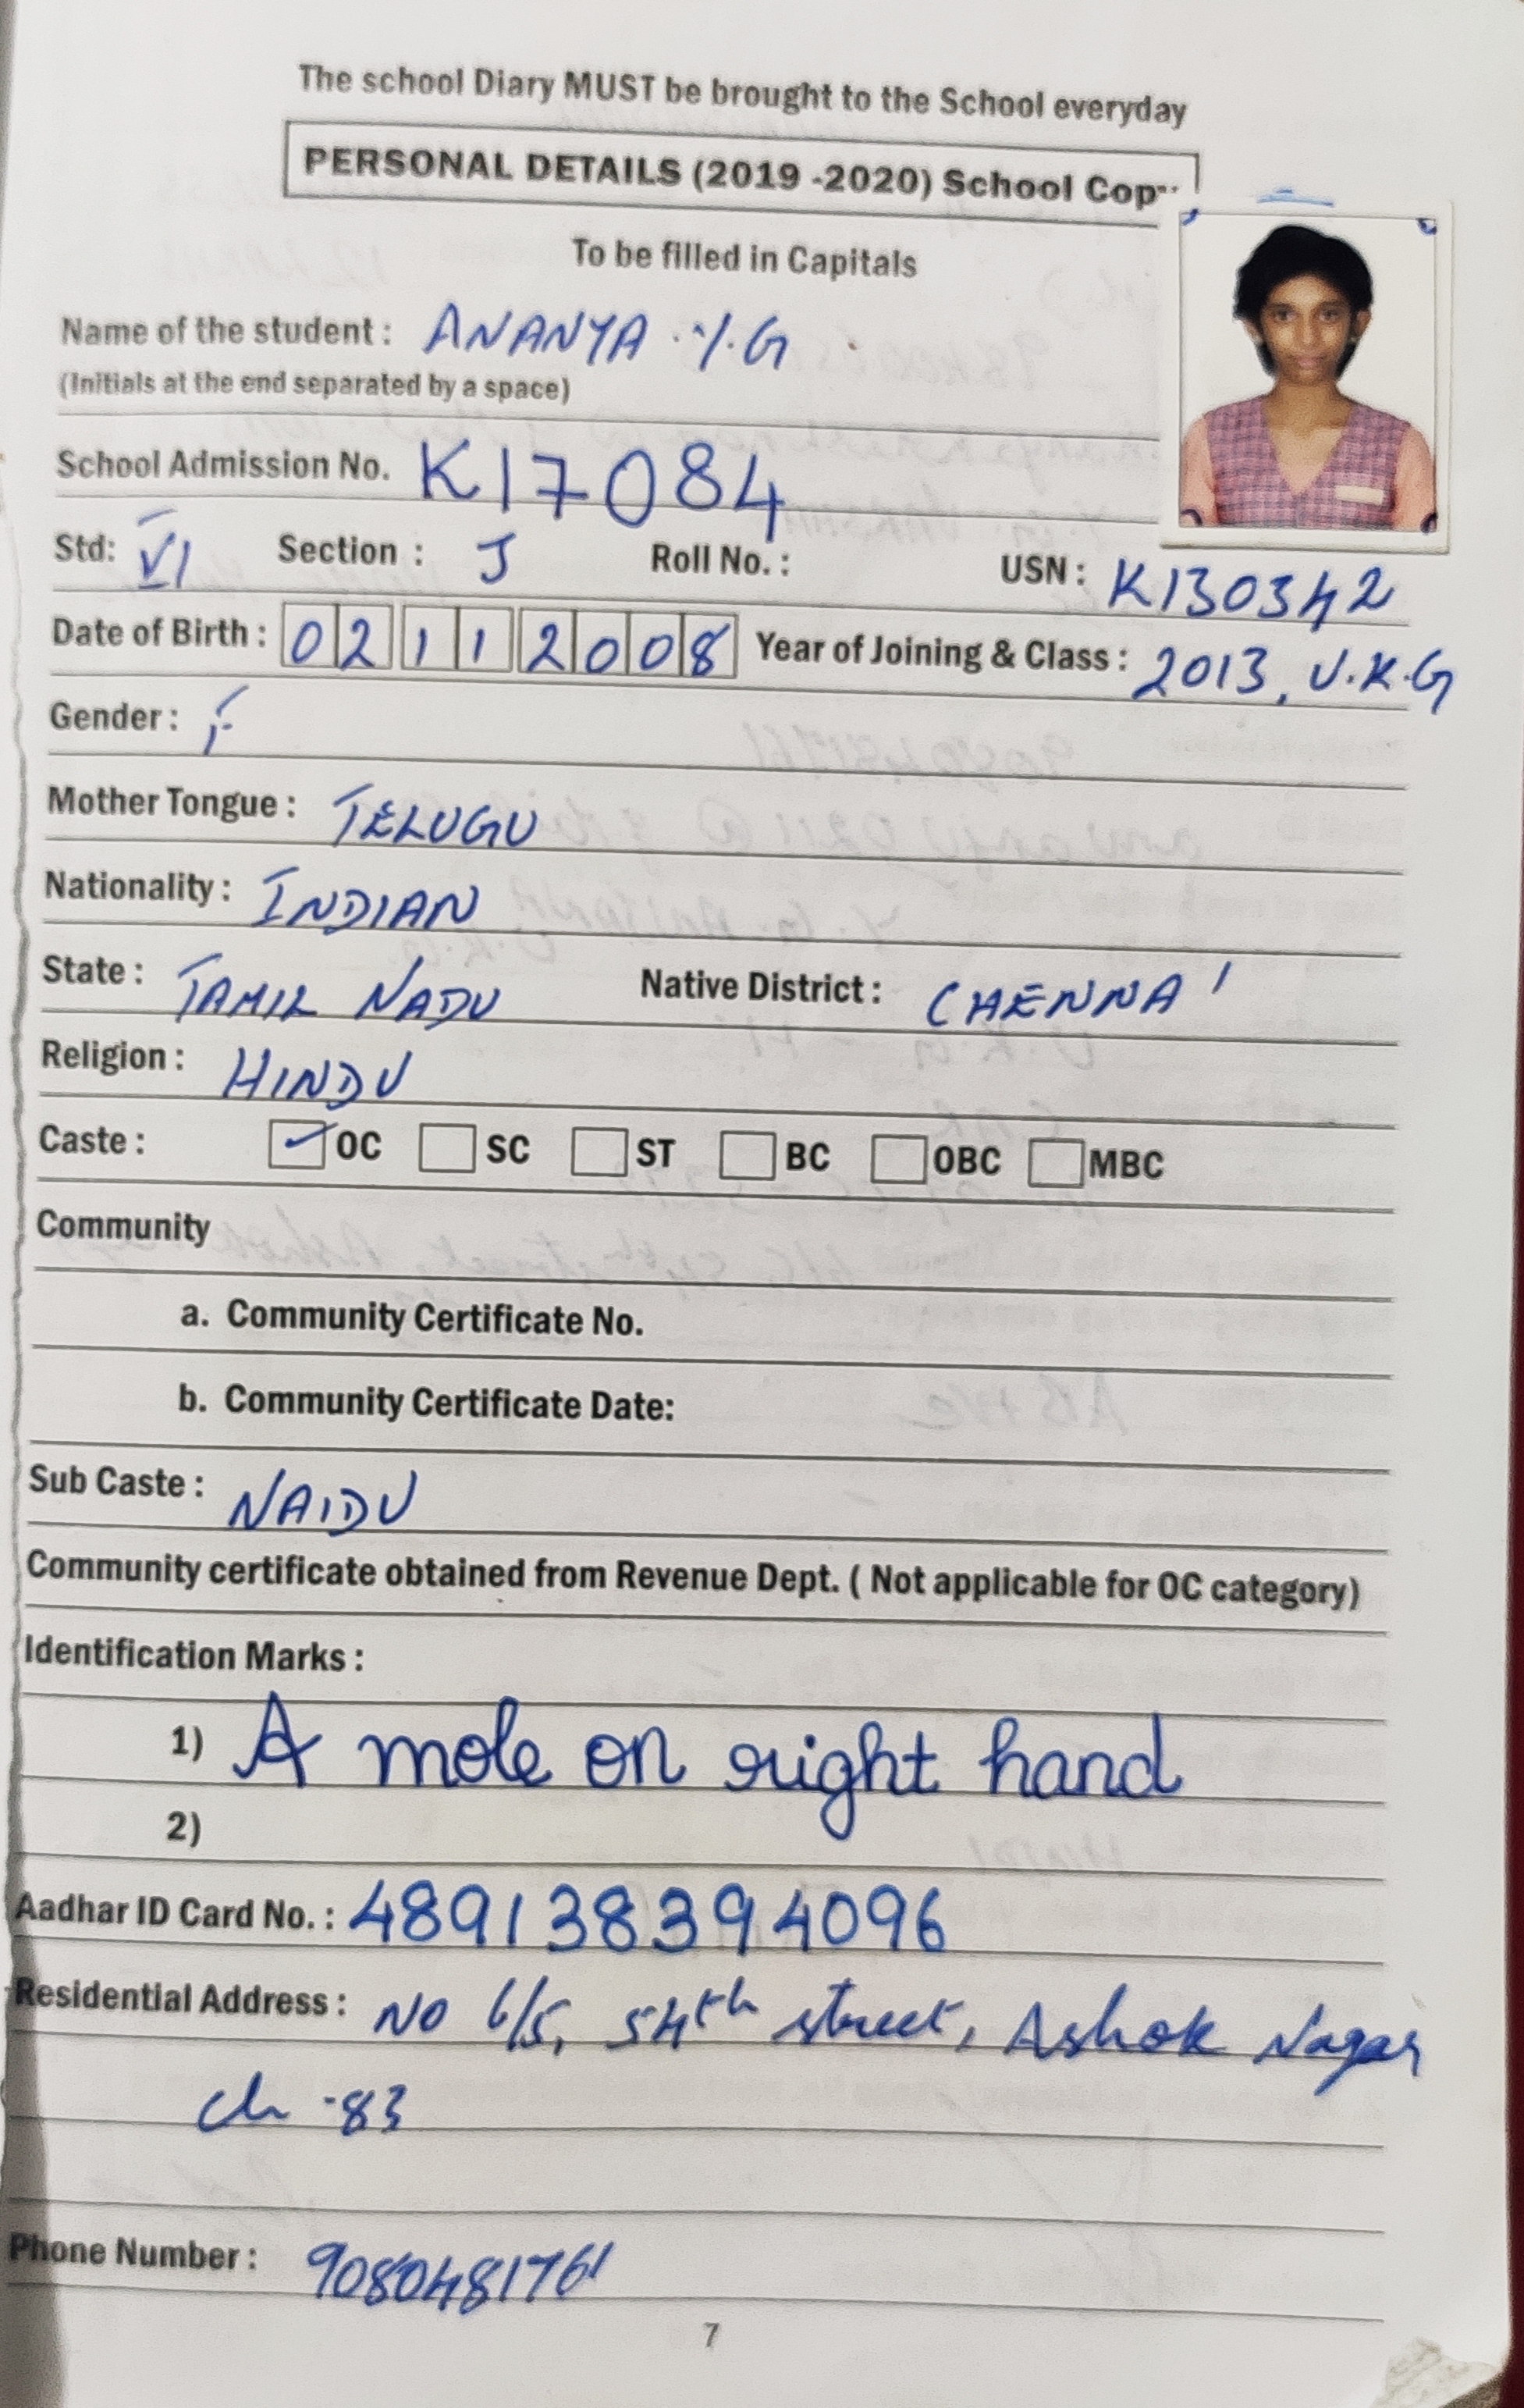 The school Diary MUST be brought to the School everyday
PERSONAL DETAILS (2019 -2020) School
To be filled in Capitals
Name of the student : ANANYA . Y.G
(Initials at the end separated by a space)
School Admission No. K17084
Std: VI Section : J Roll No. : USN : K130342
Date of Birth : 02 11 2008 Year of Joining & Class : 2013, U.K.G
Gender : F
Mother Tongue : TELUGU
Nationality : INDIAN
State : TAMIL NADU Native District : CHENNAI
Religion : HINDU
Caste : OC SC ST BC OBC MBC
Community
a. Community Certificate No.
b. Community Certificate Date:
Sub Caste : NAIDU
Community certificate obtained from Revenue Dept. ( Not applicable for OC category)
Identification Marks :
1) A mole on right hand
2)
Aadhar ID Card No. : 489138394096
Residential Address : NO 6/5, 54th street, Ashok Nagar
ch -83
Phone Number : 9080481761
7